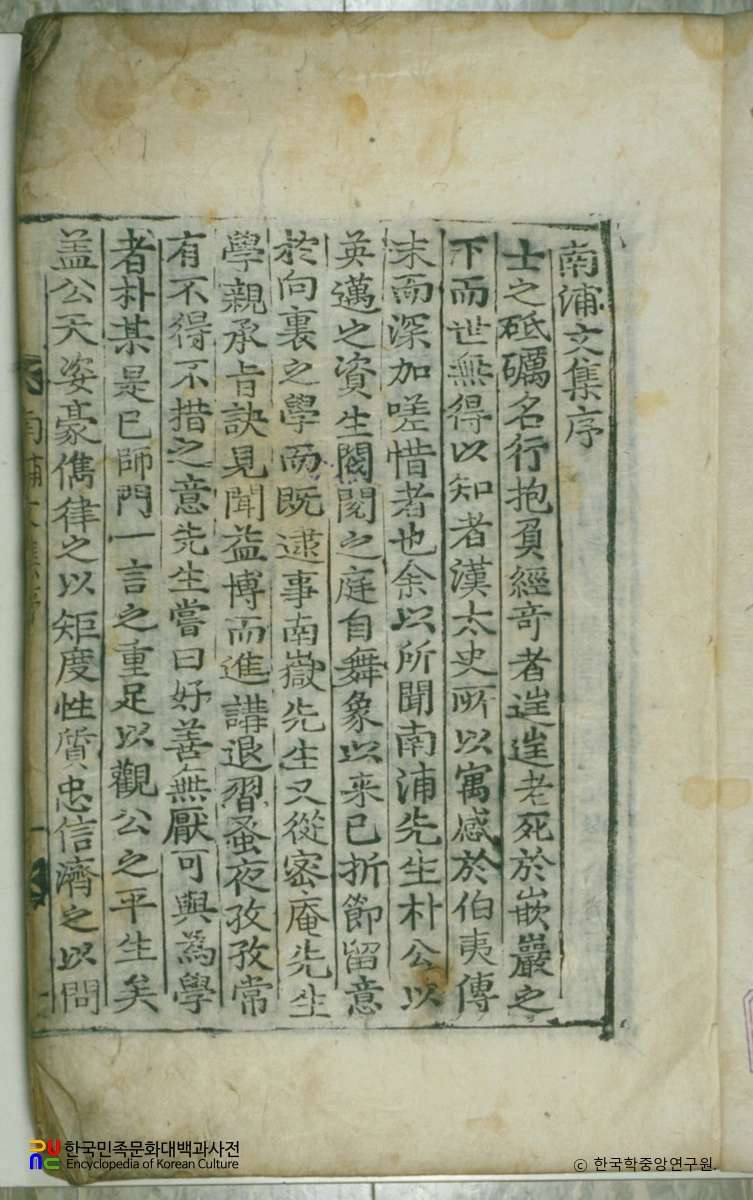 南浦文集序
士之砥礪名行抱負經奇者迬迬老死於嵌巖之
下而世無得以知者漢太史所以寓感於伯夷傳
末而深加嗟惜者也余以所聞南浦先生朴公以
英邁之資生閥閱之庭自舞象以来已折節留意
於向裏之學而既逮事南嶽先生又從密庵先生
學親承旨訣見聞益博而進講退習蚤夜孜孜常
有不得不措之意先生嘗曰好善無厭可與為學
者朴某是已師門一言之重足以觀公之平生矣
盖公天姿豪儁律之以矩度性質忠信濟之以問
南浦文集序
한국민족문화대백과사전
Encyclopedia of Korean Culture
© 한국학중앙연구원.